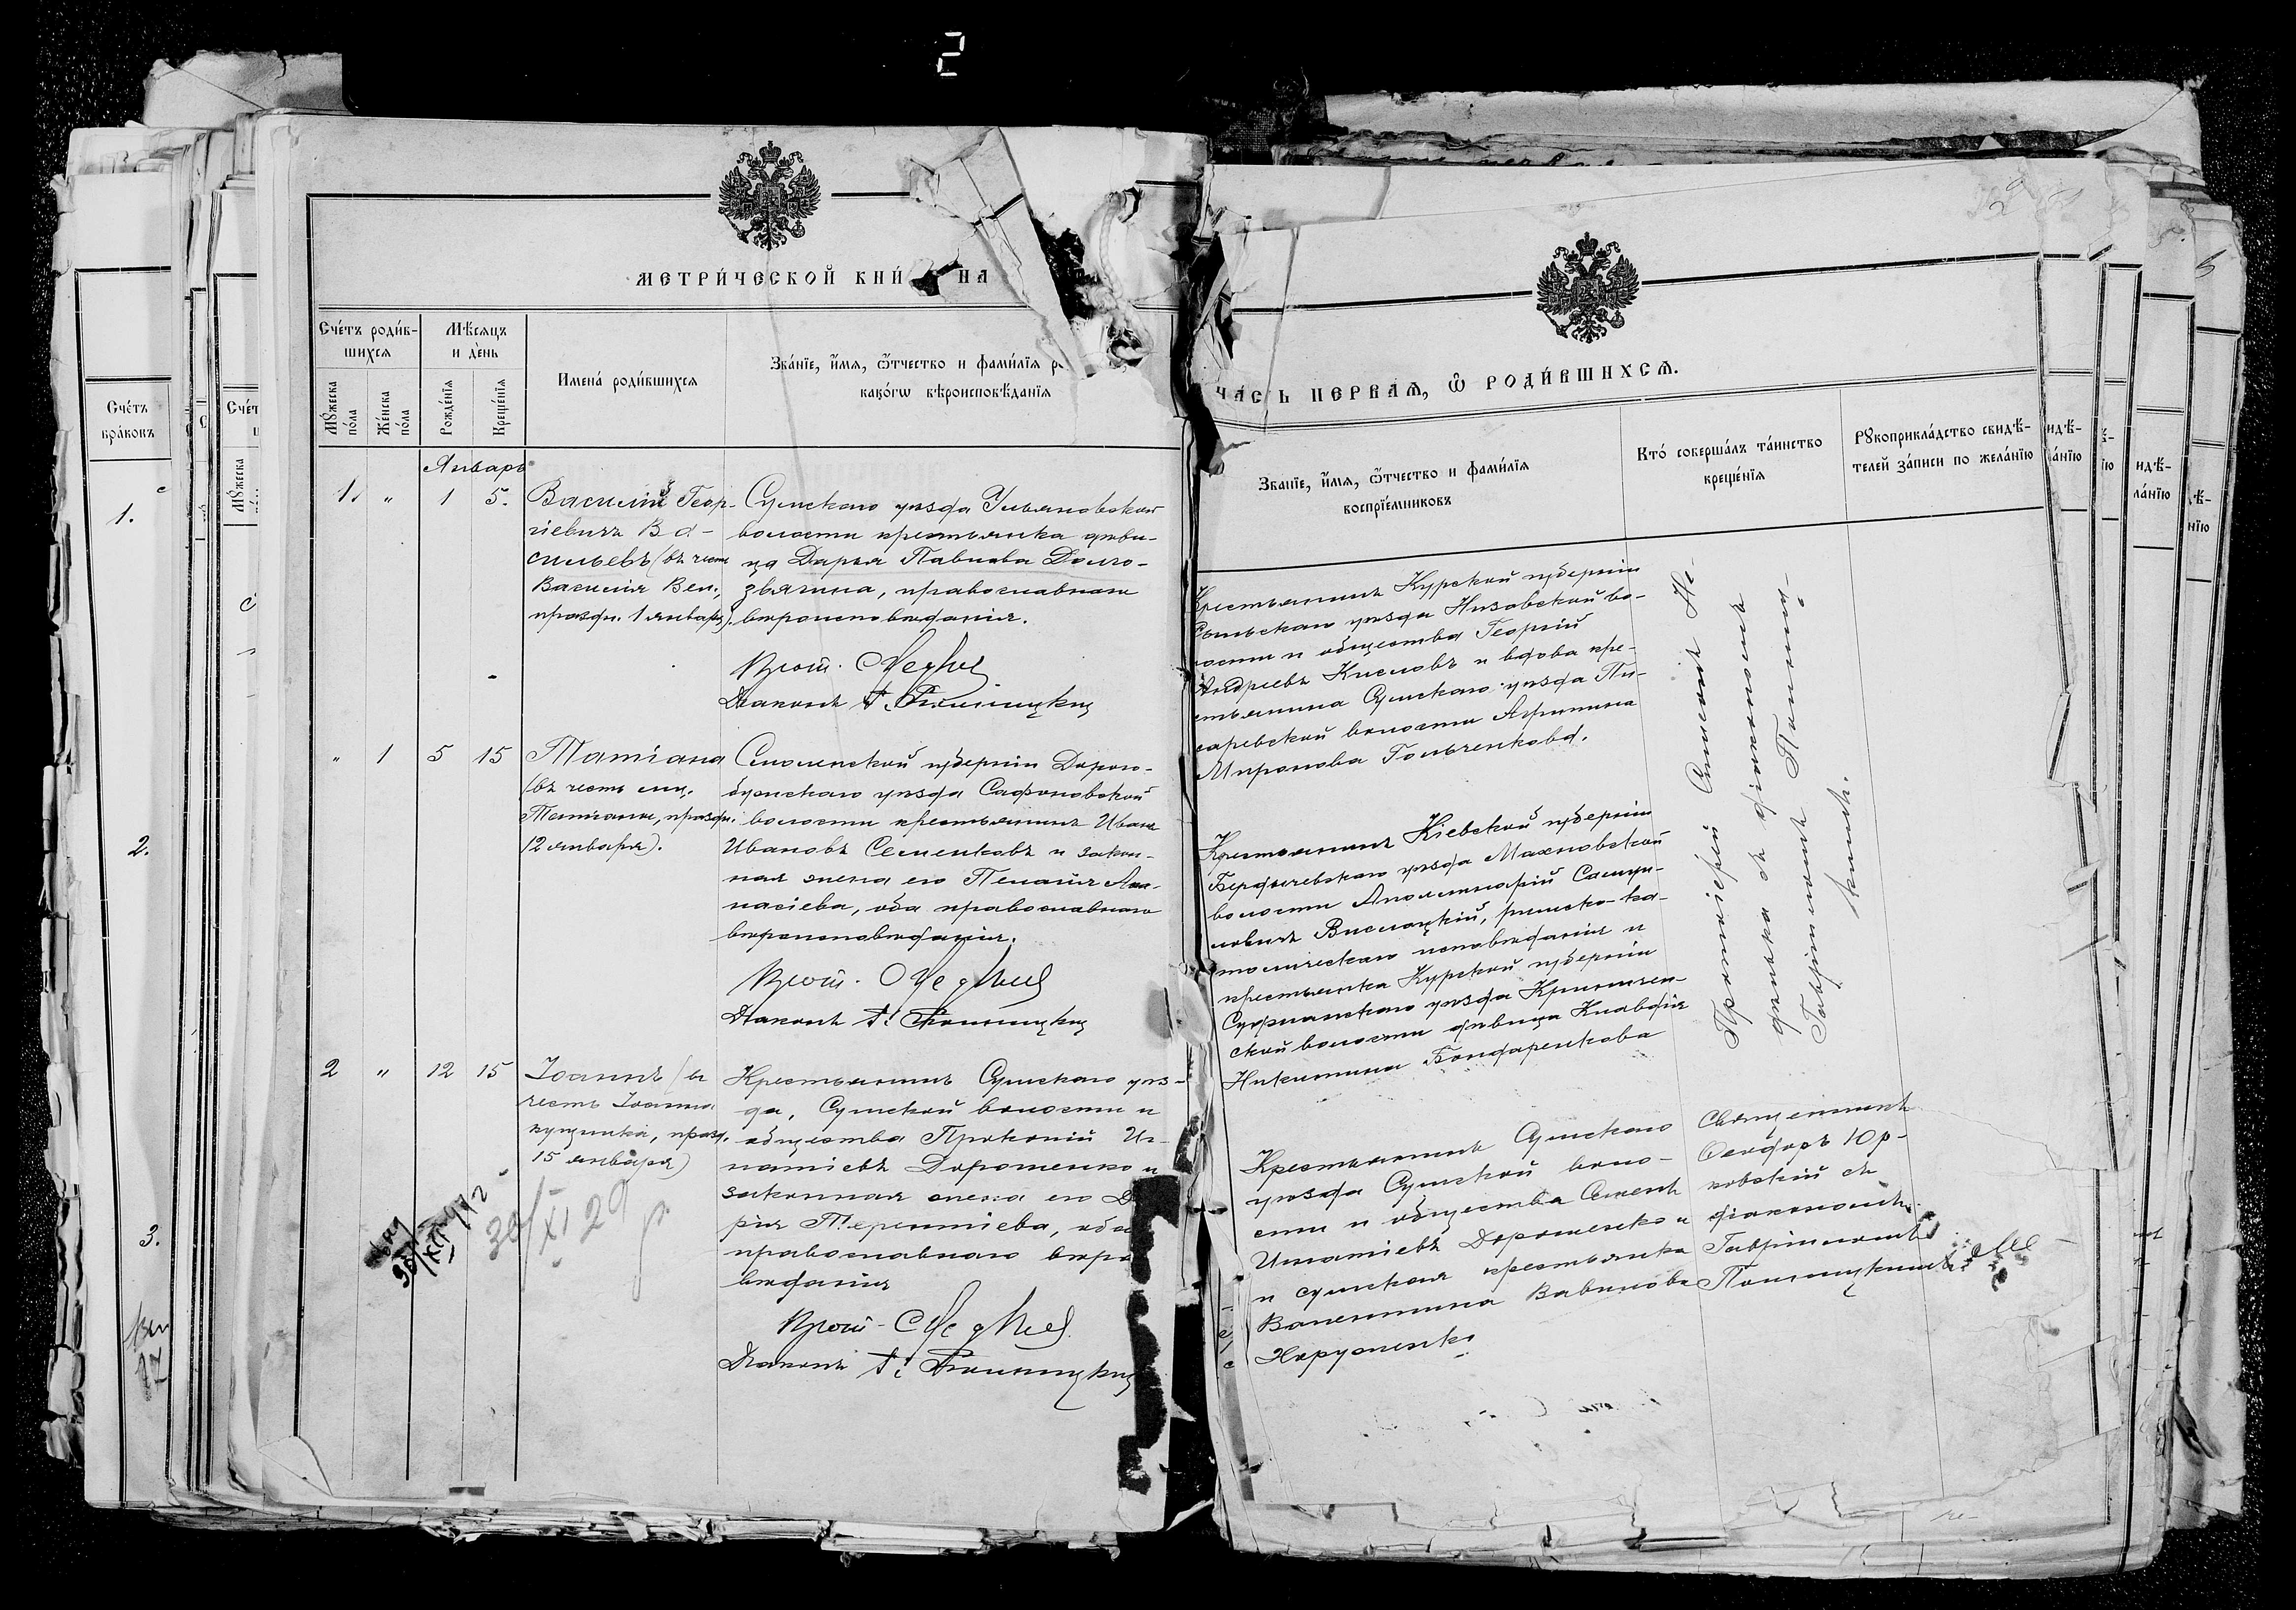 2
МЕТРИ́ЧЕСКОЙ КНИ НА
Сче́тъ роди́в-
шихся
Мѣ́сяцъ
и де́нь
Мꙋ́жеска
по́ла
Же́нска
по́ла
Рожде́нїя
Креще́нїя
Имена́ роди́вшихся
Зва́нїе, и́мя, ѻ҆́тчество и фами́лїя р
како́гѡ вѣроисповѣ́данїя
Январь
1. „ 1 5.
Василій Геор-
гіевичъ Ва-
сильевъ (въ честь
Василія Вел.,
праздн. 1 января).
Сумскаго уѣзда Ульяновской
волости крестьянка дѣви-
ца Дарья Павлова Долго-
звягина, православнаго
вѣроисповѣданія.
Прот.
Діаконъ Г. Полницкій
„ 1 5 15
Татіана
(въ честь муч.
Татіаны, праздн.
12 января).
Смоленской губерніи Дорого-
бужскаго уѣзда Сафоновской
волости крестьянинъ Иванъ
Ивановъ Семенковъ и закон-
ная жена его Пелагія
, оба православнаго
вѣроисповѣданія.
Прот.
Діаконъ Г. Полницкій
2 „ 12 15
Іоаннъ (въ
честь Іоанна
кущника, празд.
15 января)
Крестьянинъ Сумскаго уѣз-
да, Сумской волости и
общества Прокопій Иг-
натіевъ Дорошенко и
законная жена его Да
рія Терентіева, оба
православнаго вѣро
вѣданія
Прот.
Діаконъ Г. Полницкій
30/XI 29
ЧА́СТЬ ПЕРВАЯ, Ѡ҆ РОДИ́ВШИХСЯ.
Зва́нїе, и́мя, ѻ҆́тчество и фами́лїя
воспрїе́мниковъ
Кто́ соверша́лъ та́инство
креще́нїя
Рꙋкоприкла́дство свидѣ́-
телей за́писи по жела́нїю
Крестьянинъ Курской губерніи
Рыльскаго уѣзда Низовской во-
лости и общества Георгій
Андреевъ Кисловъ и вдова кре-
стьянина Сумскаго уѣзда Пи-
саревской волости Агрипина
Миронова Гольченкова.
Крестьянинъ Кіевской губерніи
Бердичевскаго уѣзда Махновской
волости Аполинарій Самуи-
ловичъ Вислоцкій, римско-ка-
толическаго исповѣданія и
крестьянка Курской губерніи
Суджанскаго уѣзда Криничен-
ской волости дѣвица Клавдія
Никитина Бондаренкова
Протоіерей Симеонъ
съ діакономъ
Гавріиломъ Полниц-
кимъ.
Крестьянинъ Сумскаго
уѣзда Сумской воло-
сти и общества Семенъ
Игнатіевъ Дорошенко и
и сумская крестьянка
Валентина Вавилова
Священникъ
Ѳеодоръ Юр-
ковскій съ
діакономъ
Гавріиломъ
Полницкимъ.
Сче́тъ
бра́ковъ
1.
2.
3.